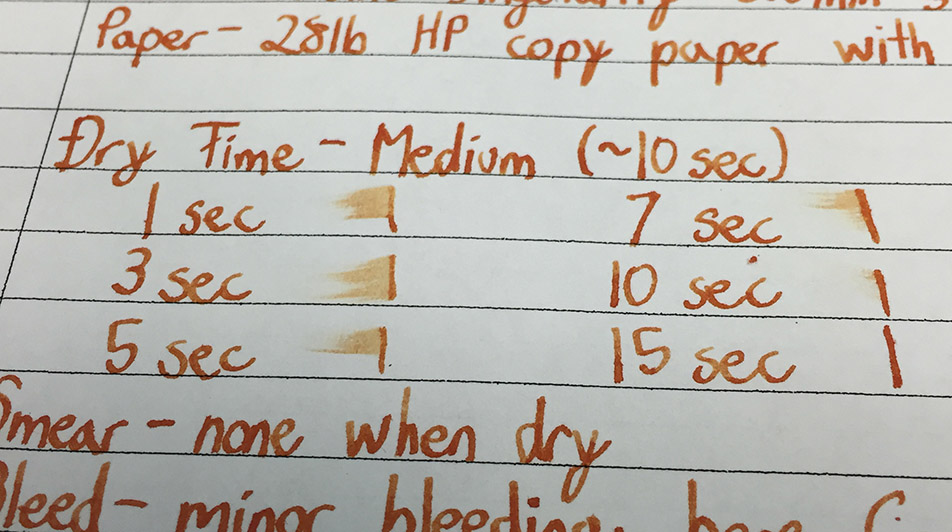 Paper - 28lb HP copy paper with
Dry Time - Medium (~10 sec)
1 sec 7 sec
3 sec 10 sec
5 sec 15 sec
Smear - none when dry
Bleed - minor bleeding,